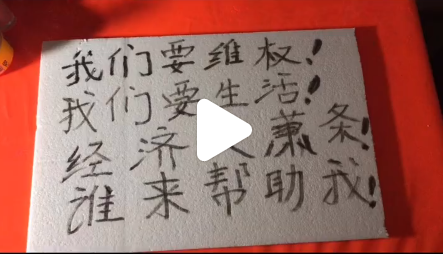 我们要维权!
我们要生活!
经济萧条!
谁来帮助我!